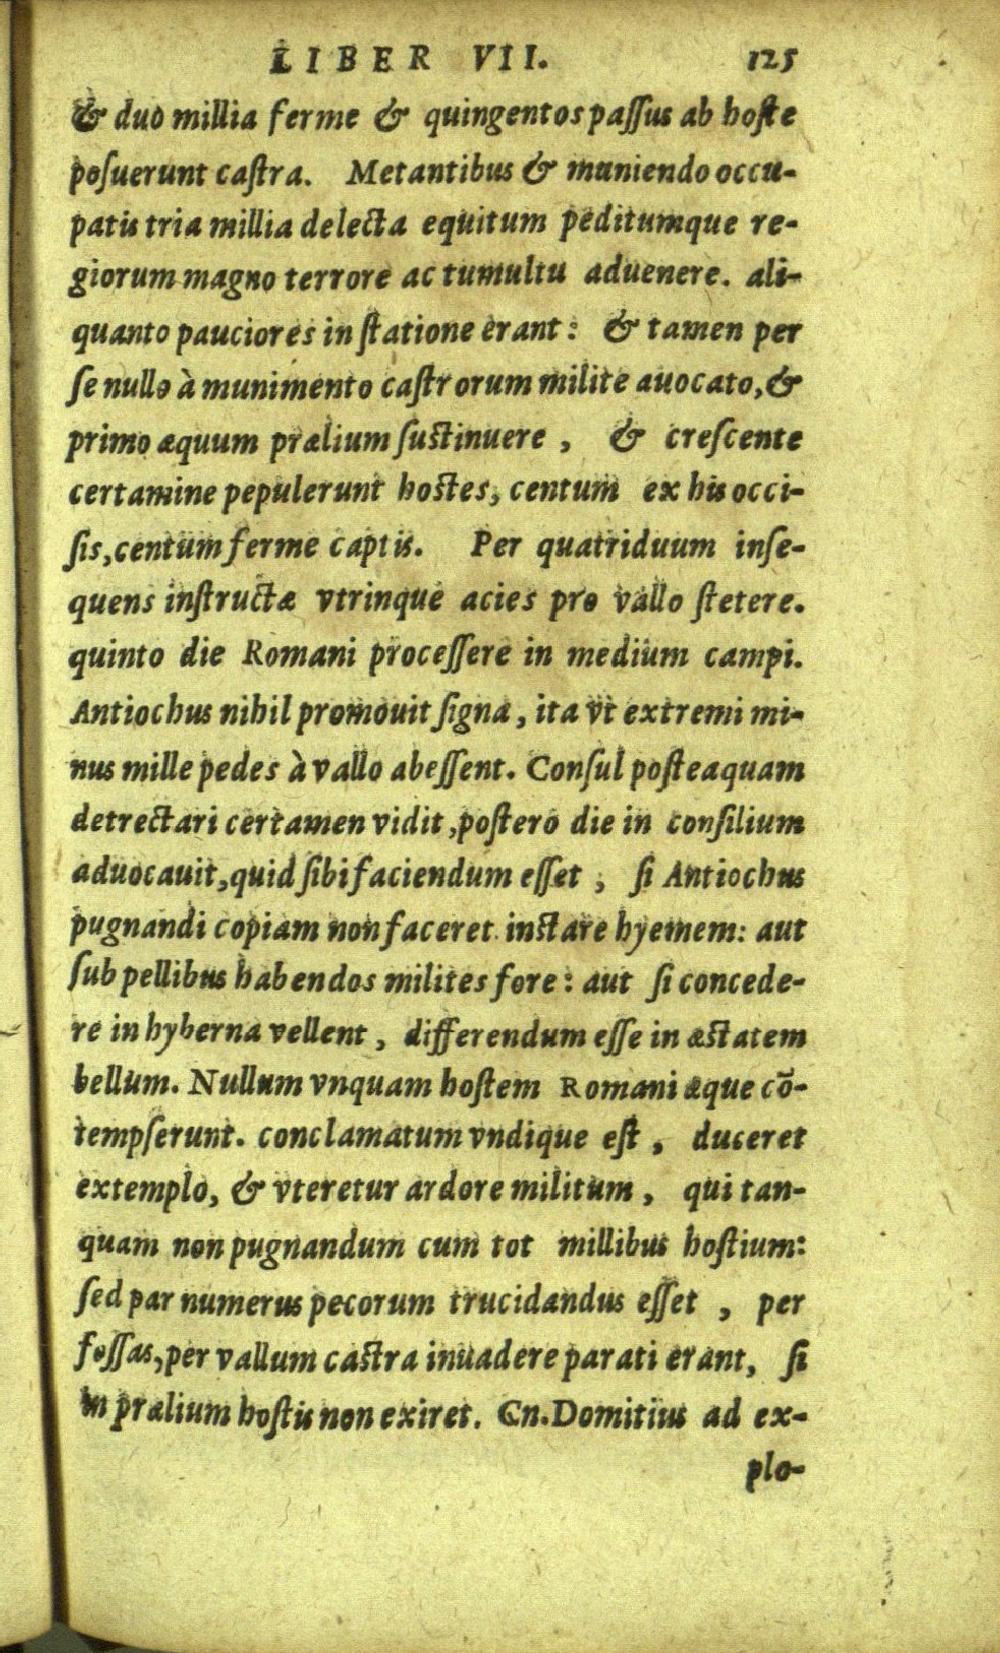 LIBER VII. 125
& duo millia ferme & quingentos paſſus ab hoſte
poſuerunt caſtra. Metantibus & muniendo occu-
patis tria millia delecta equitum peditumque re-
giorum magno terrore ac tumultu aduenere. ali-
quanto pauciores in ſtatione erant: & tamen per
ſe nullo à munimento caſtrorum milite auocato, &
primo æquum prælium ſuſtinuere, & creſcente
certamine pepulerunt hoſtes, centum ex his occi-
ſis, centum ferme captis. Per quatriduum inſe-
quens inſtructæ vtrinque acies pro vallo ſtetere.
quinto die Romani proceſſere in medium campi.
Antiochus nihil promouit ſigna, ita vt extremi mi-
nus mille pedes à vallo abeſſent. Conſul poſteaquam
detrectari certamen vidit, poſtero die in conſilium
aduocauit, quid ſibi faciendum eſſet, ſi Antiochus
pugnandi copiam non faceret. inſtare hyemem: aut
ſub pellibus habendos milites fore: aut ſi concede-
re in hyberna vellent, differendum eſſe in æſtatem
bellum. Nullum vnquam hoſtem Romani æque cō-
tempſerunt. conclamatum vndique eſt, duceret
extemplo, & vteretur ardore militum, qui tan-
quam non pugnandum cum tot millibus hoſtium:
ſed par numerus pecorum trucidandus eſſet, per
foſſas, per vallum caſtra inuadere parati erant, ſi
in prælium hoſtis non exiret. Cn. Domitius ad ex-
plo-